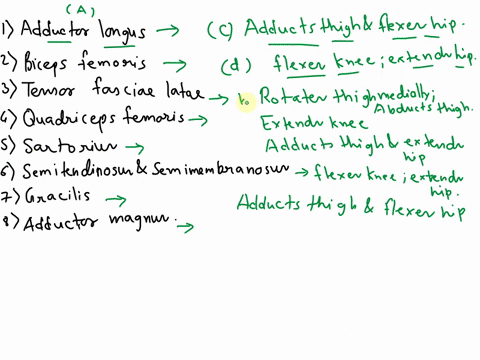 (A)
1) Adductor longus → (C) Adducts thigh & flexer hip.
2) Biceps femoris → (d) flexer knee; extendr hip.
3) Tensor fasciae latae → Rotater thigh medially; Abducts thigh.
4) Quadriceps femoris → Extendr knee
5) Sartorius → Adducts thigh & extendr hip
6) Semitendinosus & Semimembranosus → flexer knee; extendr hip.
7) Gracilis → Adducts thigh & flexer hip
8) Adductor magnus. →